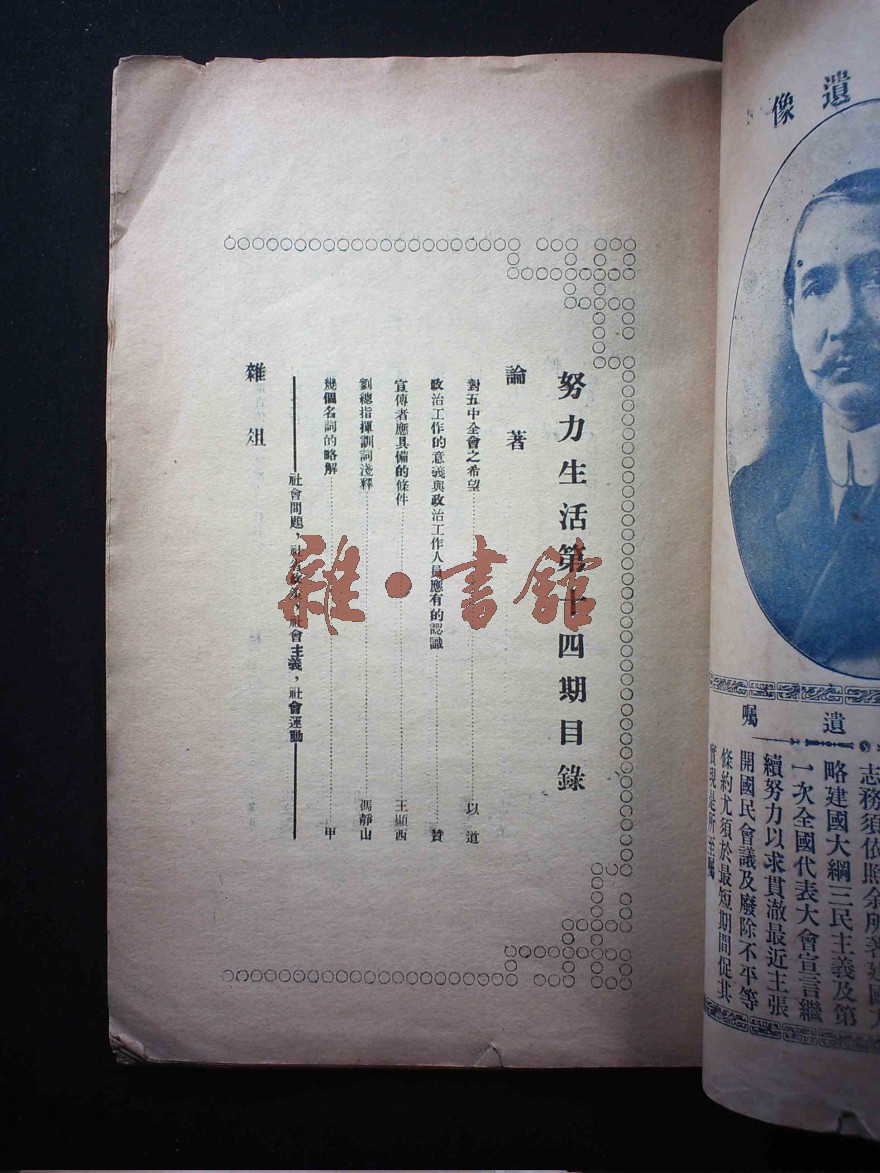 努力生活第十四期目錄
論著
對五中全會之希望……以道
政治工作的意義與政治工作人員應有的認識……贊
宣傳者應具備的條件……王顯西
劉總指揮訓詞淺釋……馮靜山
幾個名詞的略解……甲
——社會問題，社會政策，社會主義，社會運動——
雜俎
雜·書館
遺像
遺囑
志務須依照余所著建國大
略建國大綱三民主義及第
一次全國代表大會宣言繼
續努力以求貫澈最近主張
開國民會議及廢除不平等
條約尤須於最短期間促其
實現是所至囑